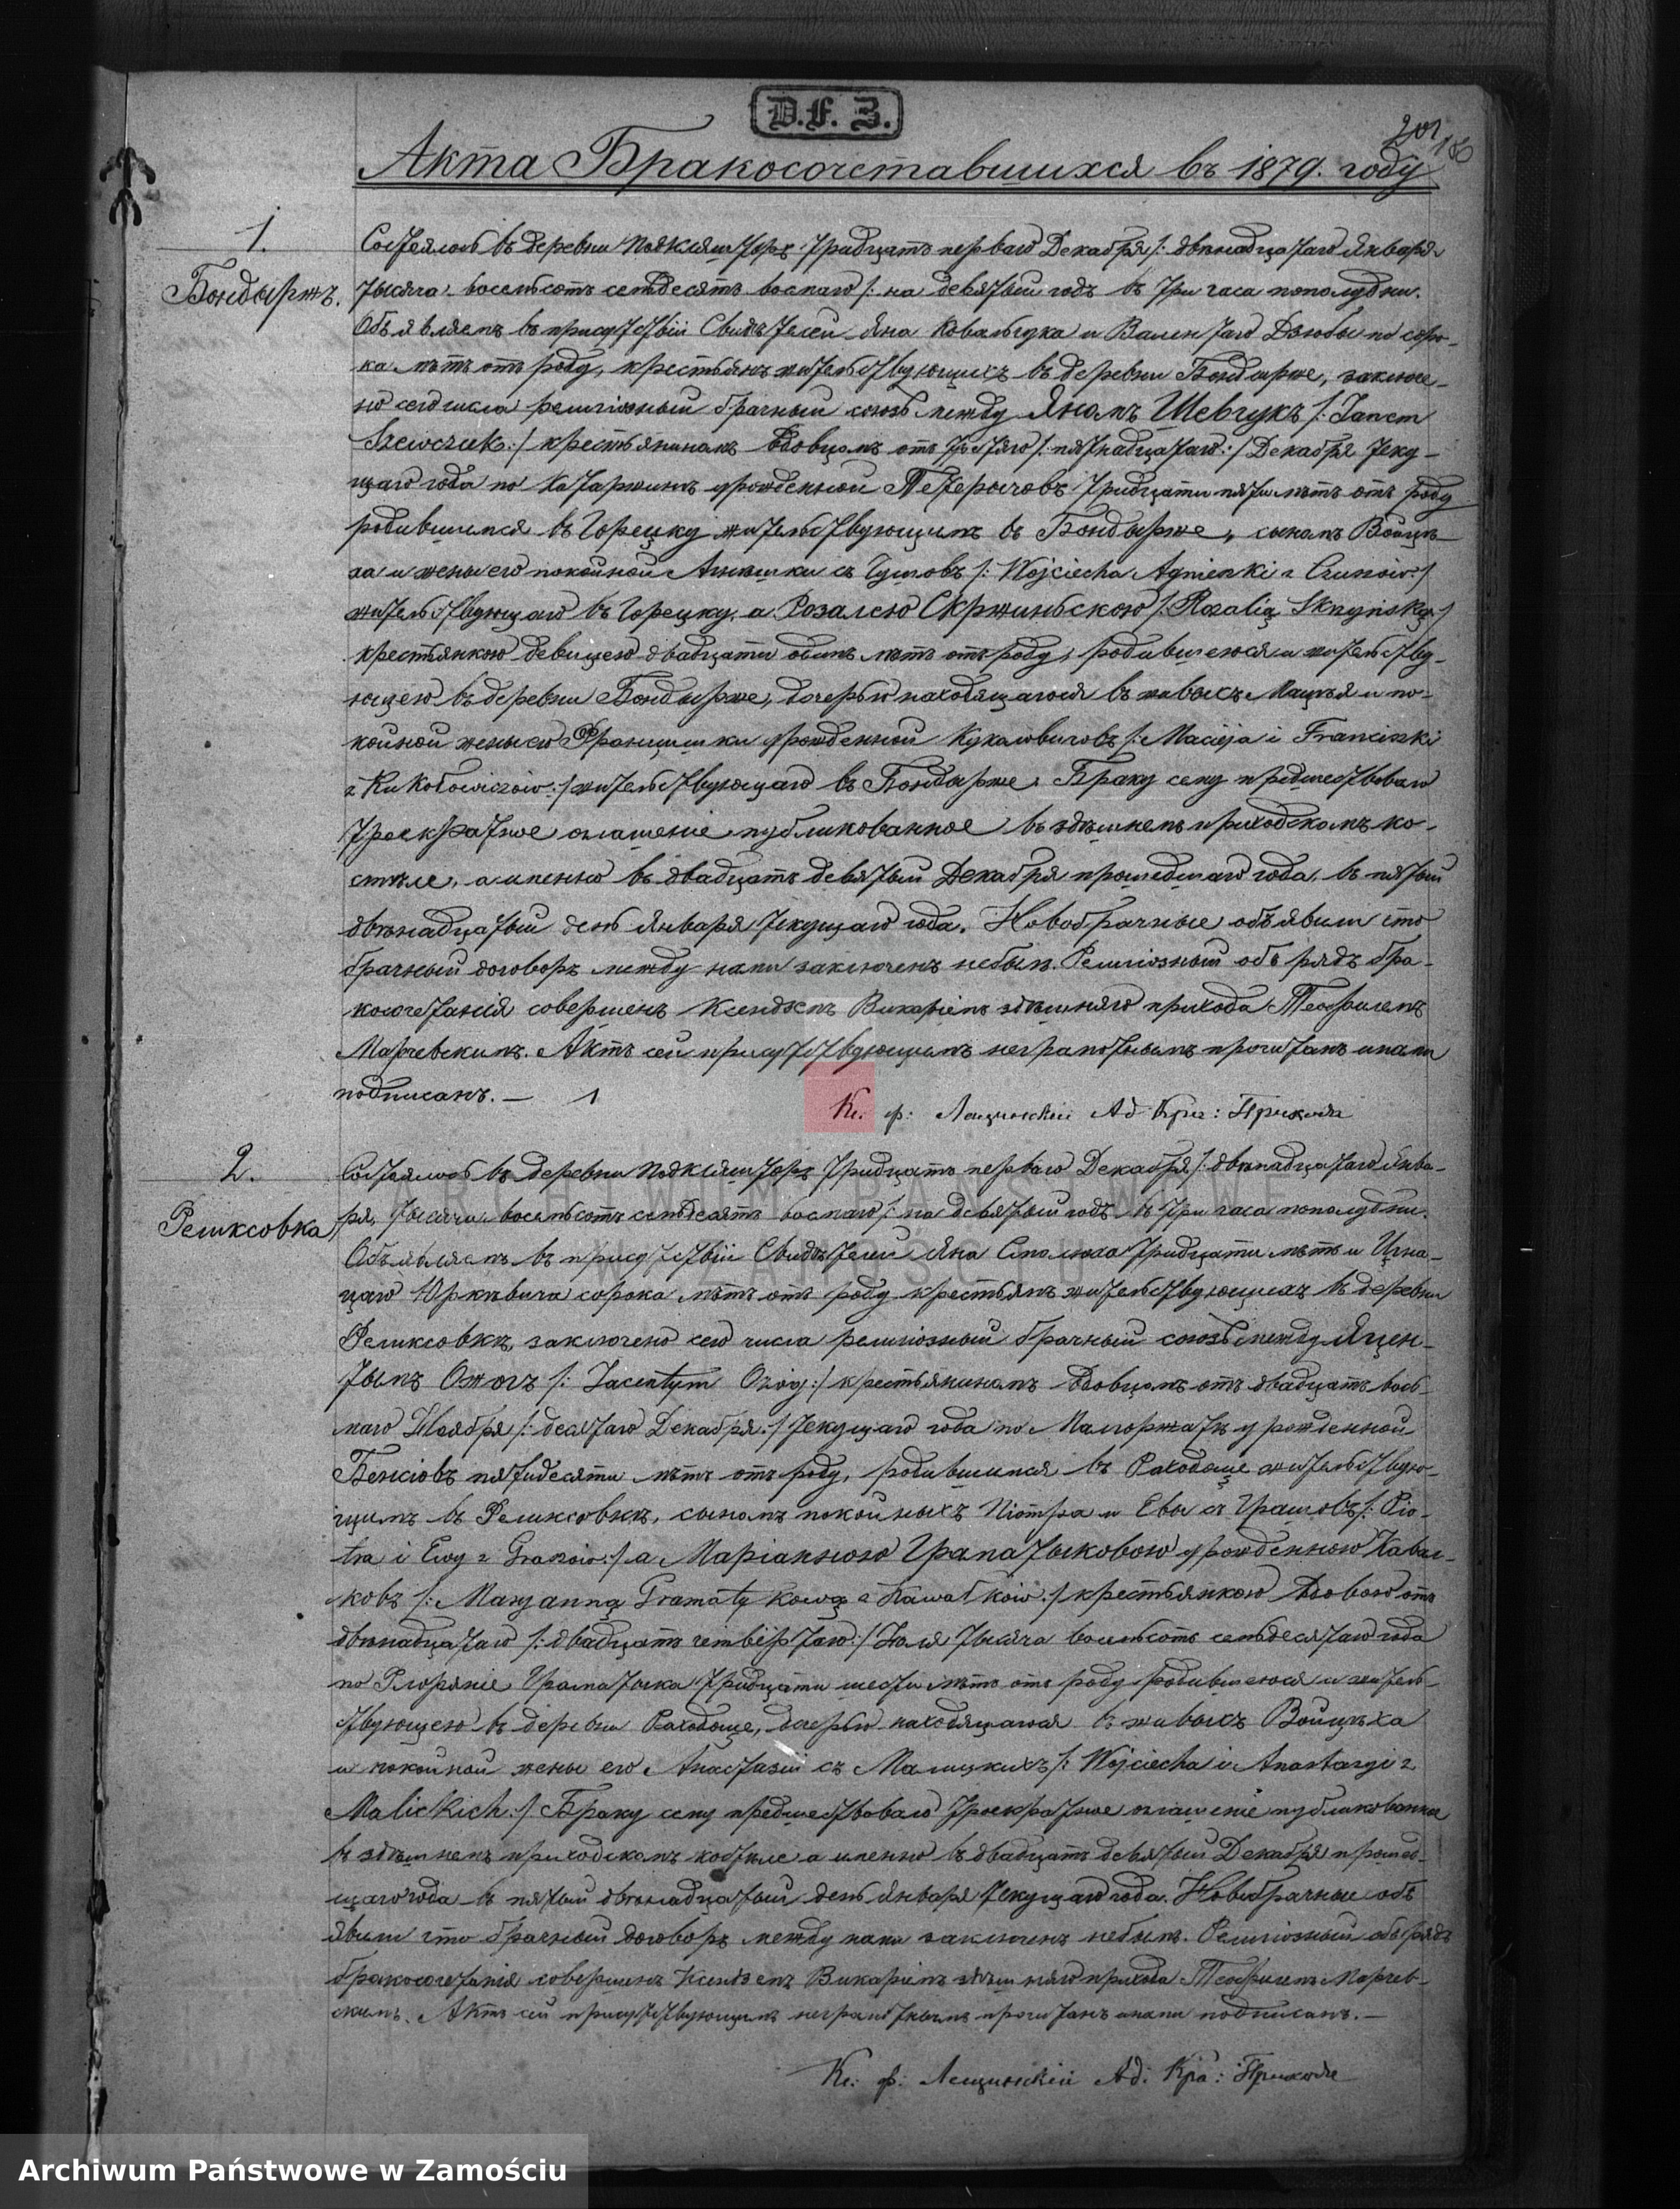 D.F. Z.
201
Акта Бракосочетавшихся въ 1879. году
1.
Бондыржъ.
Состоялось въ деревни Подкляшторѣ тридцать перваго Декабря /: двѣнадцатаго Января
тысяча восемьсотъ семдесятъ восмаго /: на девятый годъ въ три часа пополудни.
Объявляемъ въ присутствіи Свидѣтелей Яна Ковальчука и Валентаго Дзюбы по соро-
ка лѣтъ отъ роду, крестьянъ жительствующихъ въ деревни Бондырже, заключе-
но сего числа религіозный брачный союзъ между Яномъ Шевчукъ /: Janem
Szewczuk :/ крестьяниномъ вдовцомъ отъ третяго /: пятнадцатаго :/ Декабря теку-
щаго года по Катаржинѣ урожденной Петерычовъ тридцати пяти лѣтъ отъ роду
родившимся въ Горецку жительствующимъ въ Бондырже, сыномъ Войцѣ-
ха и жены его покойной Агнешки съ /: Wojciecha Agnieszki z
жительствующаго въ Горецку, а Розалею Скржиньскою /: Rozalią Skrzyńską :/
крестьянкою девицею двадцати одинъ лѣтъ отъ роду, родившеюся и жительству-
ющею въ деревни Бондырже, дочерью находящагося въ живыхъ Мацѣя и по-
койной жены его Францишки урожденной Кукаловичовъ /: Macieja i Franciszki
z Kukołowiczów :/ жительствующаго въ Бондырже. Браку сему предшествовало
троекратное оглашеніе публикованное въ здѣшнемъ приходскомъ ко-
стѣле, а именно въ двадцать девятый Декабря прошедшаго года, въ пятый
двѣнадцатый день Января текущаго года. Новобрачные объявили что
брачный договоръ между ними заключенъ небылъ. Религіозный обрядъ бра-
косочетанія совершенъ Ксендземъ Викаріемъ здѣшняго прихода Теофилемъ
Марчевскимъ. Актъ сей присутствующимъ неграмотнымъ прочитанъ и нами
подписанъ. — 1
Кс. ф: Лещинскій Ад: Кра: Прихода
2.
Феликсовка
Состоялось въ деревни Подкляшторѣ тридцать перваго Декабря /: двѣнадцатаго Янва-
ря, тысяча восемьсотъ семдесятъ восмаго /: на девятый годъ въ три часа пополудни.
Объявляемъ въ присутствіи Свидѣтелей Яна тридцати лѣтъ и Игна-
цаго Юркевича сорока лѣтъ отъ роду крестьянъ жительствующихъ въ деревни
Феликсовкѣ, заключено сего числа религіозный брачный союзъ между Яцен-
тымъ Ожогъ /: Jacentym Ożóg :/ крестьяниномъ вдовцомъ отъ двадцать вось-
маго Ноября /: десятаго Декабря :/ текущаго года по Малгоржатѣ урожденной
пятидесяти лѣтъ отъ роду, родившимся въ Раходоще жительствую-
щимъ въ Феликсовкѣ, сыномъ покойныхъ Піотра и Евы съ /: Pio-
tra i Ewy z :/ а Маріанною Граматыковою урожденною Кавал-
ковъ /: Maryanną Gramatykową z Kawałków :/ крестьянкою вдовою отъ
двѣнадцатаго /: двадцать четвертаго :/ Іюля тысяча восемьсотъ семьдесятаго года
по Флоряніе Граматыка тридцати шести лѣтъ отъ роду родившеюся и житель-
ствующею въ деревни Раходоще, дочерью находящагося въ живыхъ Войцѣха
и покойной жены его Анастазіи съ Малицкихъ /: Wojciecha i Anastazyi z
Malickich :/ Браку сему предшествовало троекратное оглашеніе публикованное
въ здѣшнемъ приходскомъ костѣле а именно въ двадцать девятый Декабря прошед-
щаго года въ пятый двѣнадцатый день Января текущаго года. Новобрачные объ
явили что брачный договоръ между ними заключенъ небылъ. Религіозный обрядъ
бракосочетанія совершенъ Ксендземъ Викаріемъ здѣшняго прихода Теофилемъ Марчев-
скимъ. Актъ сей присутствующимъ неграмотнымъ прочитанъ и нами подписанъ. —
Кс: ф: Лещинскій Ад: Кра: Прихода
ARCHIWUM PAŃSTWOWE
W ZAMOŚCIU
Archiwum Państwowe w Zamościu